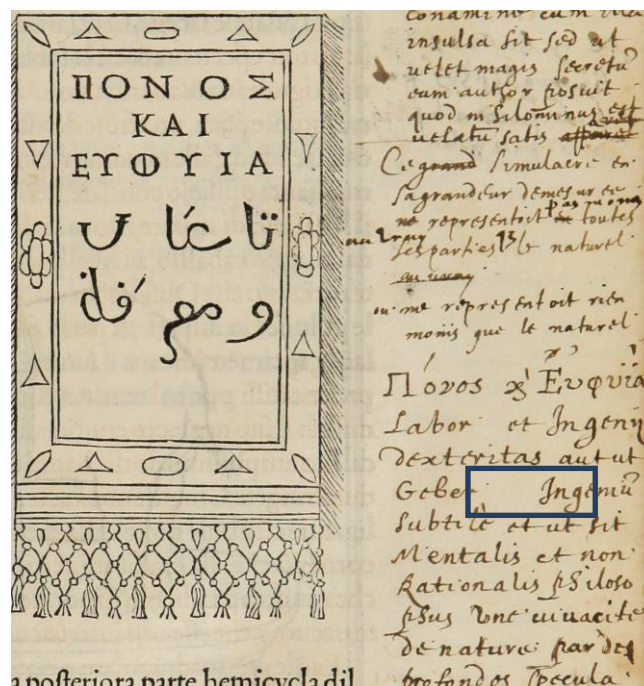 ΠΟΝΟΣ
ΚΑΙ
ΕΥΦΥΙΑ
conamine cum
insulsa sit sed ut
uelet magis secretũ
eam author posuit
quod in
uelatũ satis
Ce grand simulacre en
sa grandeur demesuree
ne representoit pas moins toutes
ses parties le naturel
ou uray
ou ne representoit rien
moins que le naturel
Πόνος ϗ Ευφυϊα
Labor et Ingenij
dexteritas aut ut
Geber Ingeniũ
subtile et ut sit
Mentalis et non
Rationalis philoso
phus une uiuacite
de nature par des
profondes specula
a posteriora parte hemicycla dil